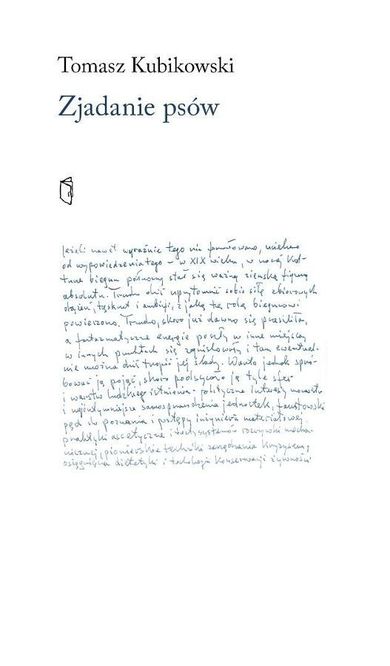 Tomasz Kubikowski
Zjadanie psów
Jeżeli nawet wyraźnie tego nie formułowano,
od wypowiedzenia tego – w XIX wieku, w naszej kul-
turze biegun północny stał się ważną ziemską figurą
absolutu. Trudno dziś uprzytomnić sobie siłę zbiorowych
dążeń, tęsknot i ambicji, z jaką tę rolę biegunowi
powierzono. Trudno, skoro już dawno się przesiliła,
a fantazmatyczne energie poszły w inne miejsca,
w innych punktach się i tam ewentual-
nie można dziś tropić jej ślady. Warto jednak spró-
bować ją pojąć, skoro ją tyle sfer
i warstw ludzkiego istnienia: polityczne interesy mocarstw
i najintymniejsze samosprawdzenia jednostek, faustowski
pęd do poznania i postępy inżynierii materiałowej
praktyki ascetyczne i rozrywki
pionierskie techniki zarządzania
osiągnięcia dietetyki i technologii konserwacji żywności